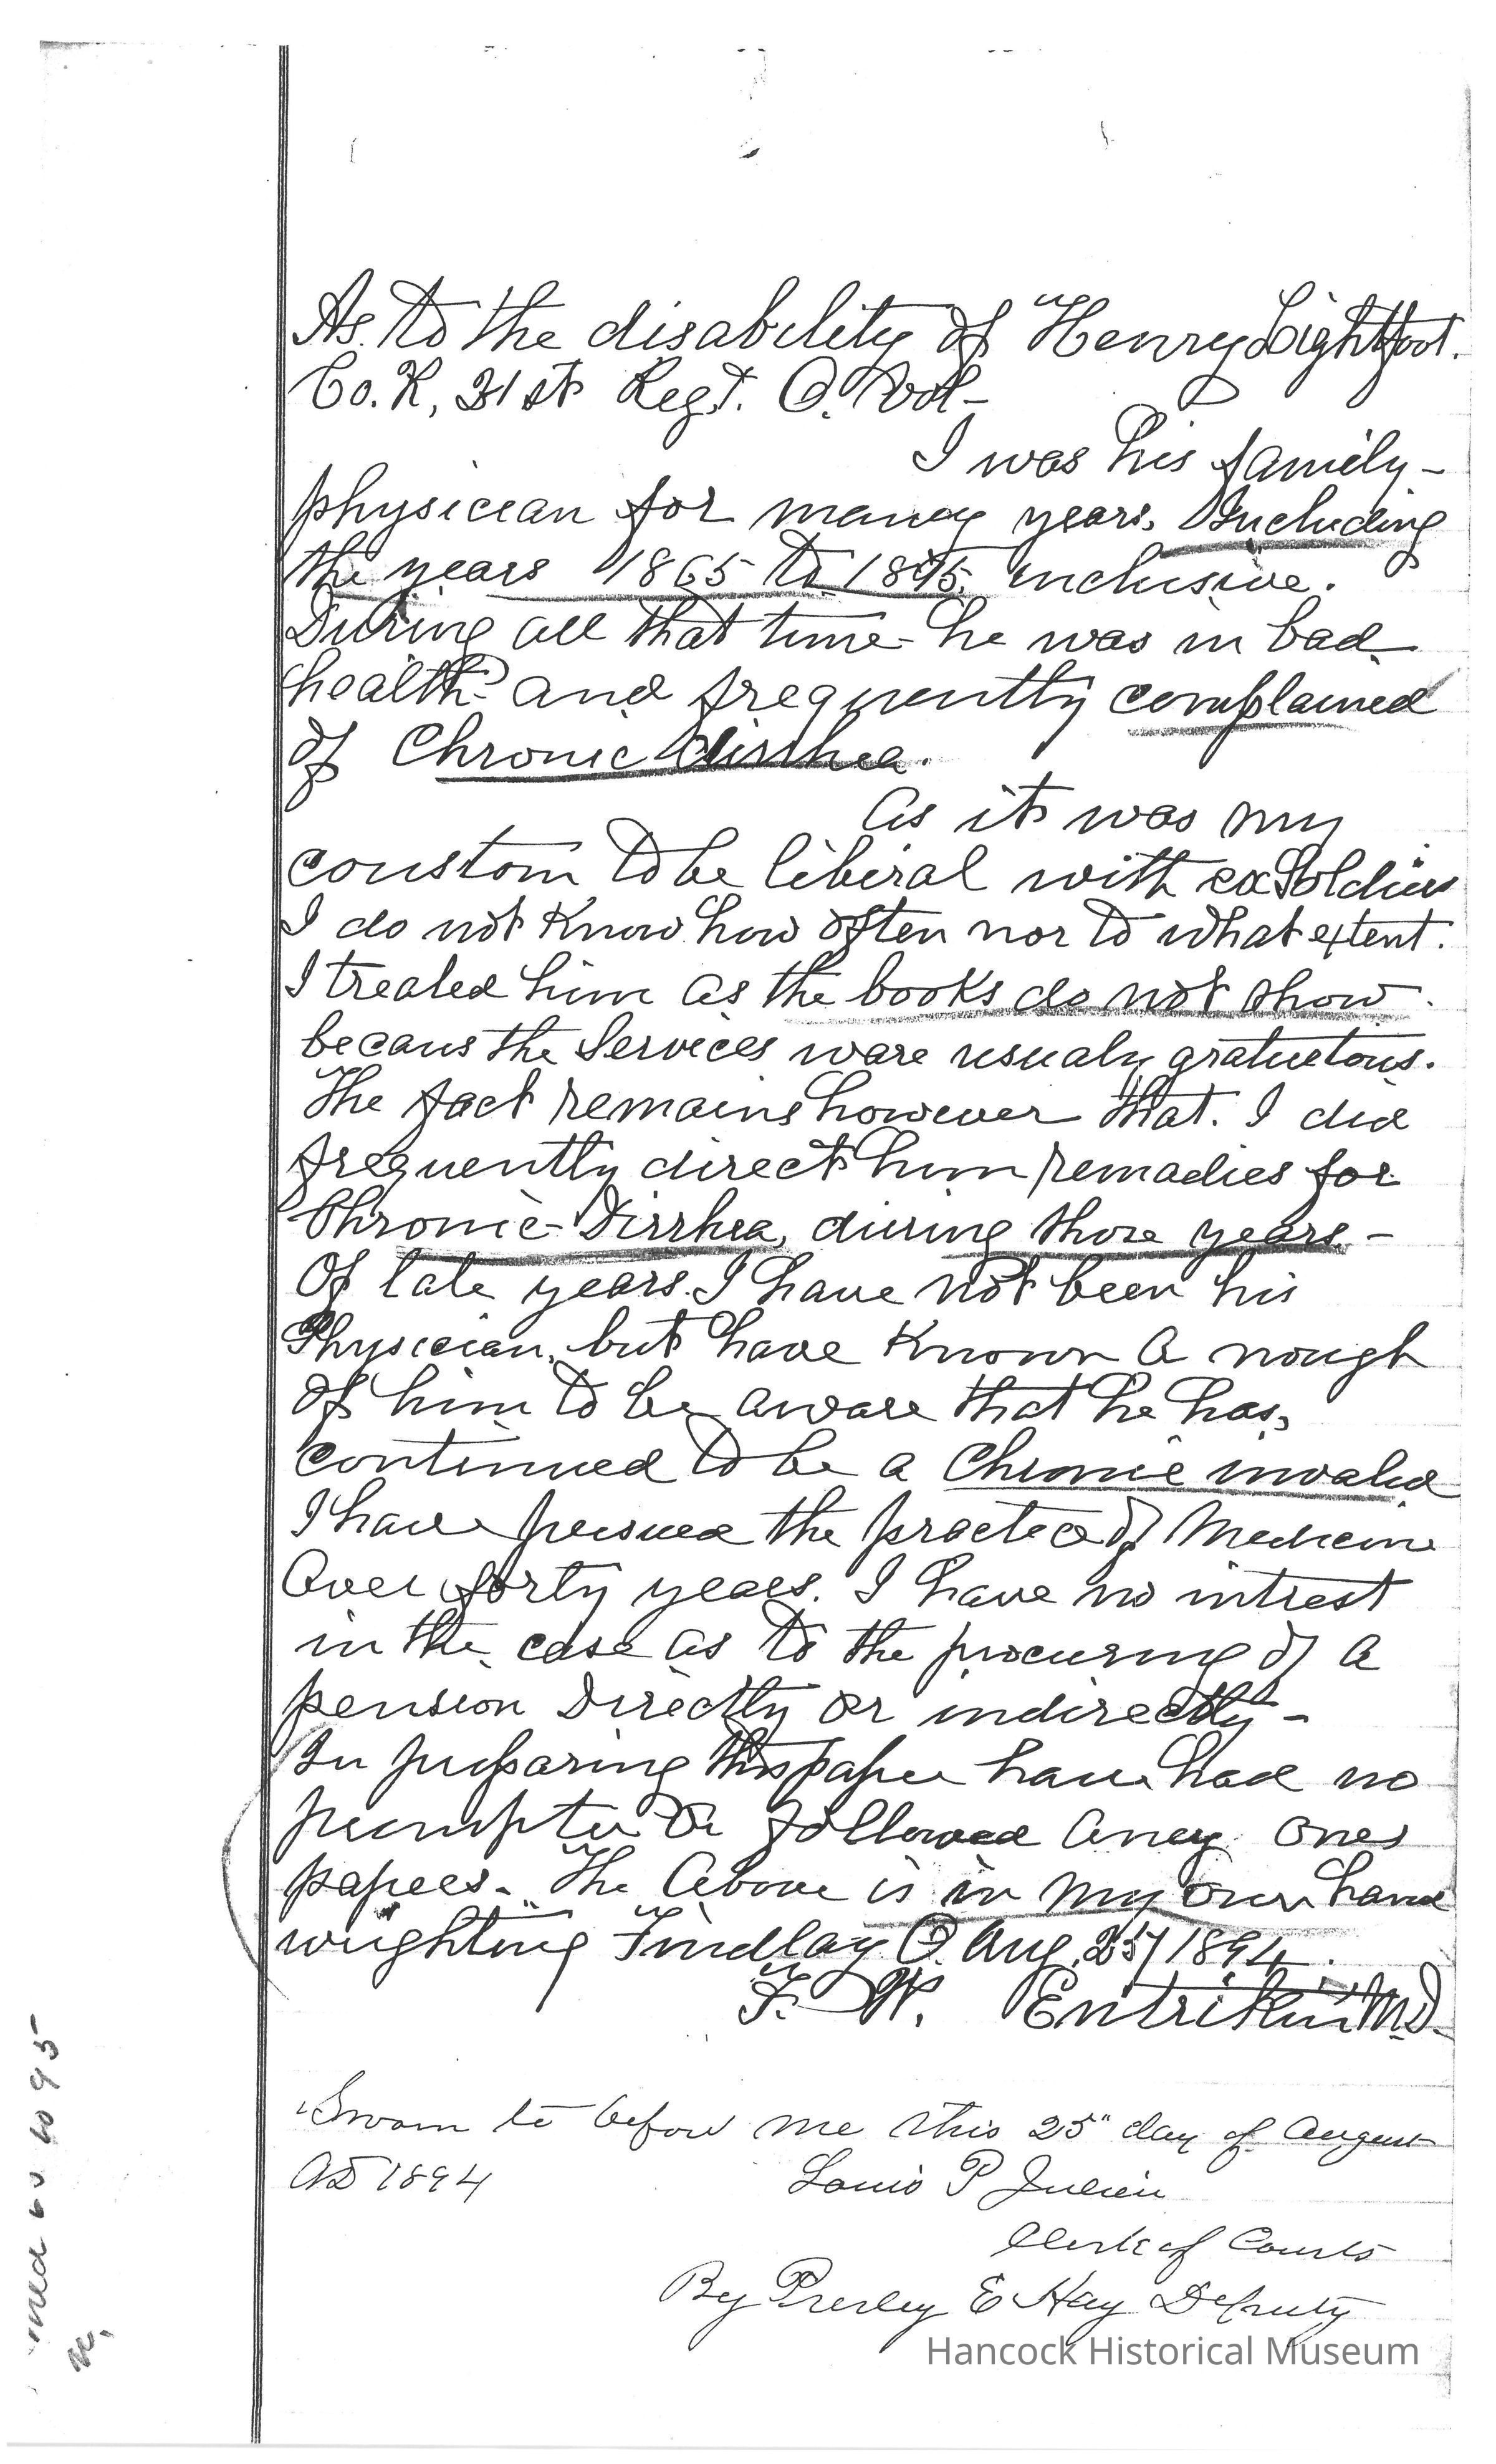 As. to the disability of Henry Lightfoot.
Co. K, 31st Regt. O. Vol-
I was his family-
physician for maney years, Including
the years 1865 to 1875, inclusive.
During all that time- he was in bad
health- and frequently complained
of Chronic Dirrhea.
As it was my
coustom to be liberal with ex Soldiers
I do not Know how often nor to what extent.
I treated him as the books do not show.
becaus the Services ware usualy gratuetous.
The fact remains however that. I did
frequently direct him remadies for
Chronic-Dirrhea, during those years.-
Of late years. I have not been his
Physician, but have Known a nough
of him to be aware that he has,
continued to be a Chronic invalid
I have persued the practice of Medicine
Over forty years. I have no intrest
in the case as to the procuring of a
pension Directly or indirectly-
In preparing this paper have had no
prompter or followed aney ones
papers. The Above is in my own hand
wrighting Findlay O. Aug. 25/1894.
F. W. Entrikin M.D.
Sworn to before me this 25" day of August
AD 1894 Louis P Julien
Clerk of Courts
By Presley E Hay Deputy
Hancock Historical Museum
to 95